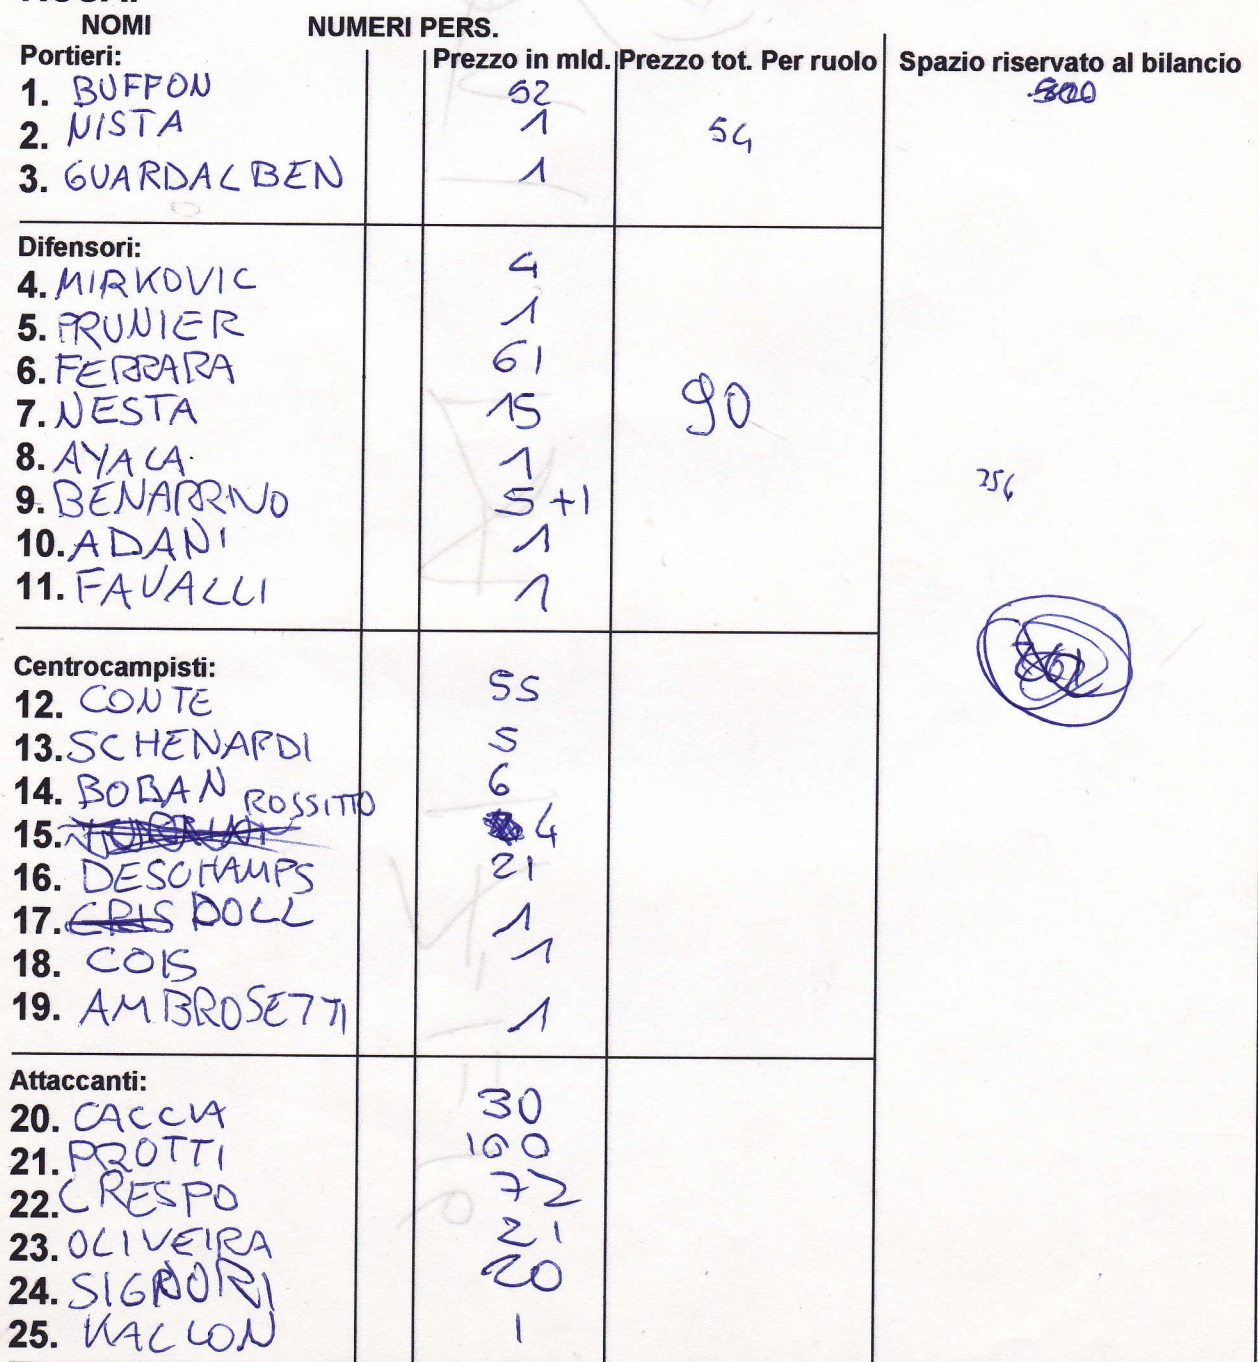 NOMI NUMERI PERS.
Portieri: Prezzo in mld. Prezzo tot. Per ruolo Spazio riservato al bilancio
1. BUFFON 52
2. NISTA 1 54
3. GUARDALBEN 1
Difensori:
4. MIRKOVIC 4
5. PRUNIER 1
6. FERRARA 61
7. NESTA 15 90
8. AYALA 1
9. BENARRIVO 5+1
10. ADANI 1
11. FAVALLI 1
Centrocampisti:
12. CONTE 55
13. SCHENARDI 5
14. BOBAN 6
15. ROSSITTO 4
16. DESCHAMPS 21
17. CRIS DOLL 1
18. COIS 1
19. AMBROSETTI 1
Attaccanti:
20. CACCIA 30
21. PROTTI 100
22. CRESPO 72
23. OLIVEIRA 21
24. SIGNORI 20
25. KALLON 1